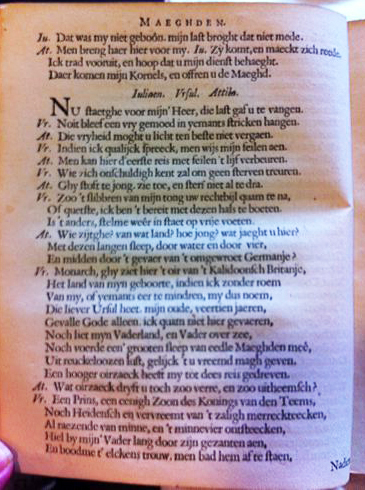 MAEGHDEN.
Iu. Dat was my niet geboôn. mijn last broght dat niet mede.
At. Men breng haer hier voor my. Iu. Zy komt, en maeckt zich reede.
Ick trad vooruit, en hoop dat u mijn dienst behaeght.
Daer komen mijn Kornels, en offren u de Maeghd.
Iuliaen. Ursul. Attila.
NU staetghe voor mijn' Heer, die last gaf u te vangen.
Vr. Noit bleef een vry gemoed in yemants stricken hangen.
At. Die vryheid moght u licht ten beste niet vergaen.
Vr. Indien ick qualijck spreeck, men wijs mijn feilen aen.
At. Men kan hier d'eerste reis met feilen 't lijf verbeuren.
Vr. Wie zich onschuldigh kent zal om geen sterven treuren.
At. Ghy stoft te jong. zie toe, en sterf niet al te dra.
Vr. Zoo 't slibbren van mijn tong uw rechtbijl quam te na,
Of quetste, ick ben 't bereit met dezen hals te boeten.
Is 't anders, stelme weêr in staet op vrije voeten.
At. Wie zijtghe? van wat land? hoe jong? wat jaeght u hier?
Met dezen langen sleep, door water en door vier,
En midden door 't gevaer van 't omgewroet Germanje?
Vr. Monarch, ghy ziet hier 't oir van 't Kalidoonsch Britanje,
Het land van mijn geboorte, indien ick zonder roem
Van my, of yemants eer te mindren, my dus noem,
Die liever Ursul heet. mijn oude, veertien jaeren,
Gevalle Gode alleen. ick quam niet hier gevaeren,
Noch liet mijn Vaderland, en Vader over zee,
Noch voerde een' grooten sleep van eedle Maeghden meê,
Uit rouckeloozen lust, gelijck 't u vreemd magh geven.
Een hooger oirzaeck heeft my tot dees reis gedreven.
At. Wat oirzaeck dryft u toch zoo verre, en zoo uitheemsch?
Vr. Een Prins, een eenigh Zoon des Konings van den Teems,
Noch Heidensch en vervreemt van 't zaligh merreckteecken,
Al raezende van minne, en 't minnevier ontsteecken,
Hiel by mijn' Vader lang door zijn gezanten aen,
En boodme t' elckens trouw. men bad hem af te staen,